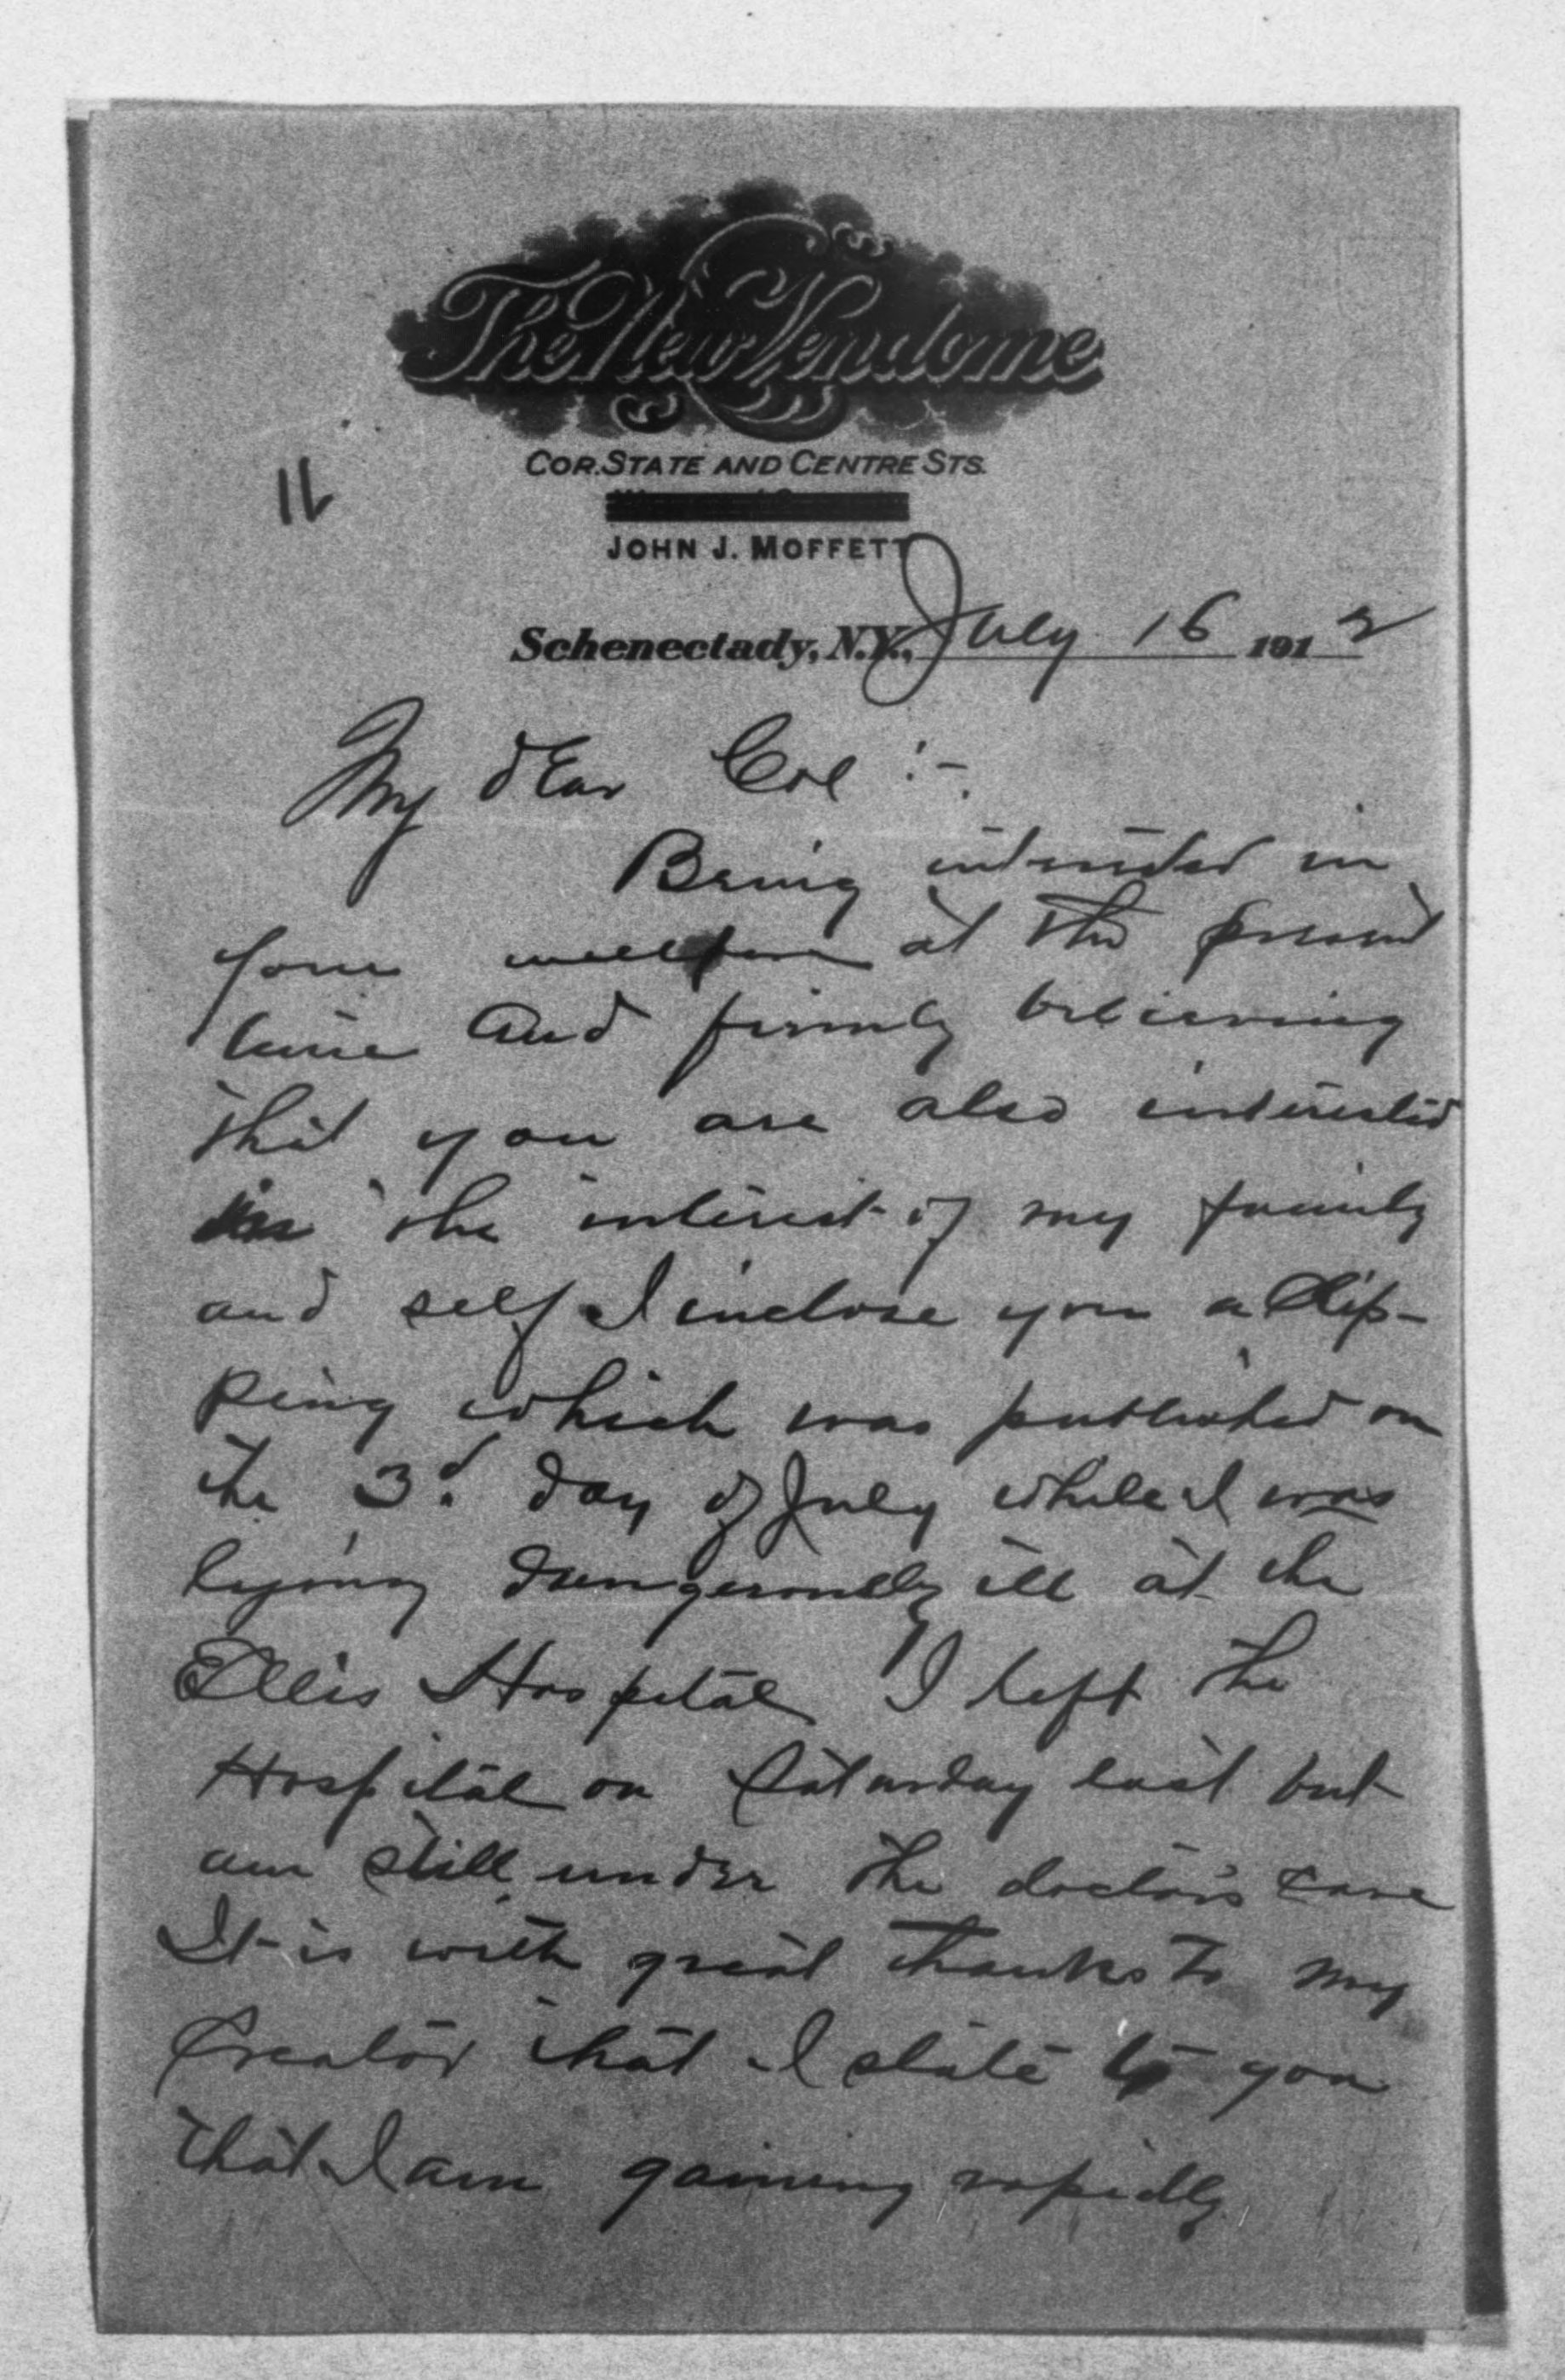 The New Vendome
COR. STATE AND CENTRE STS.
JOHN J. MOFFETT
Schenectady, N.Y., July 16 1912
My dear Col :-
Being interested in
your wellfare at the present
time and firmly believing
that you are also interested
in the interest of my family
and self I inclose you a Clip-
ping which was published on
the 3d day of July while I was
lying dangerously ill at the
Ellis Hospital I left the
Hospital on Saturday last but
am still under the doctors care
It is with great thanks to my
Creator that I state to you
that I am gaining rapidly